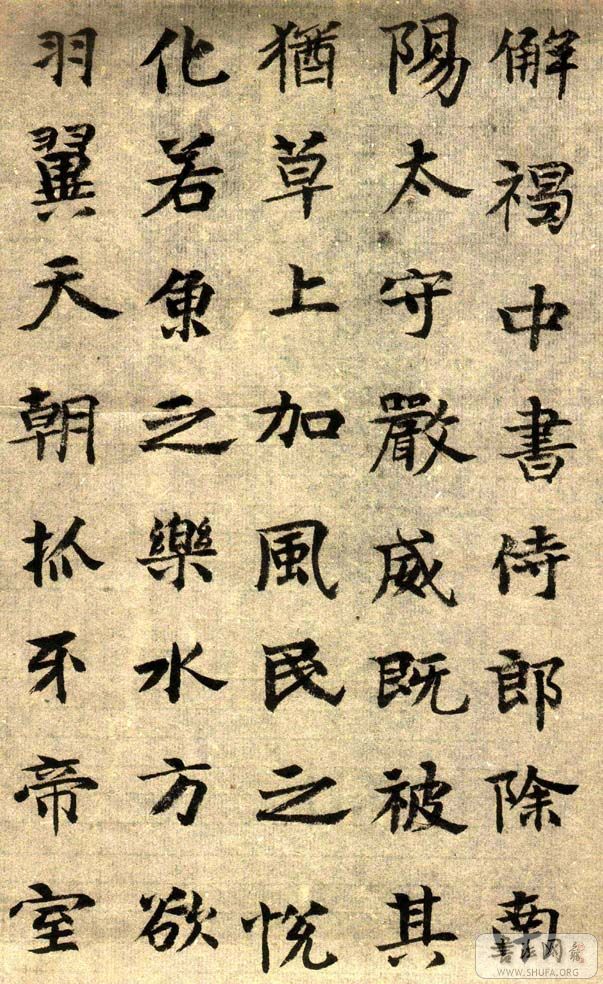 解褐中書侍郎除南
陽太守嚴威既被其
猶草上加風民之悅
化若魚之樂水方欲
羽翼天朝抓牙帝室
書法网
WWW.SHUFA.ORG